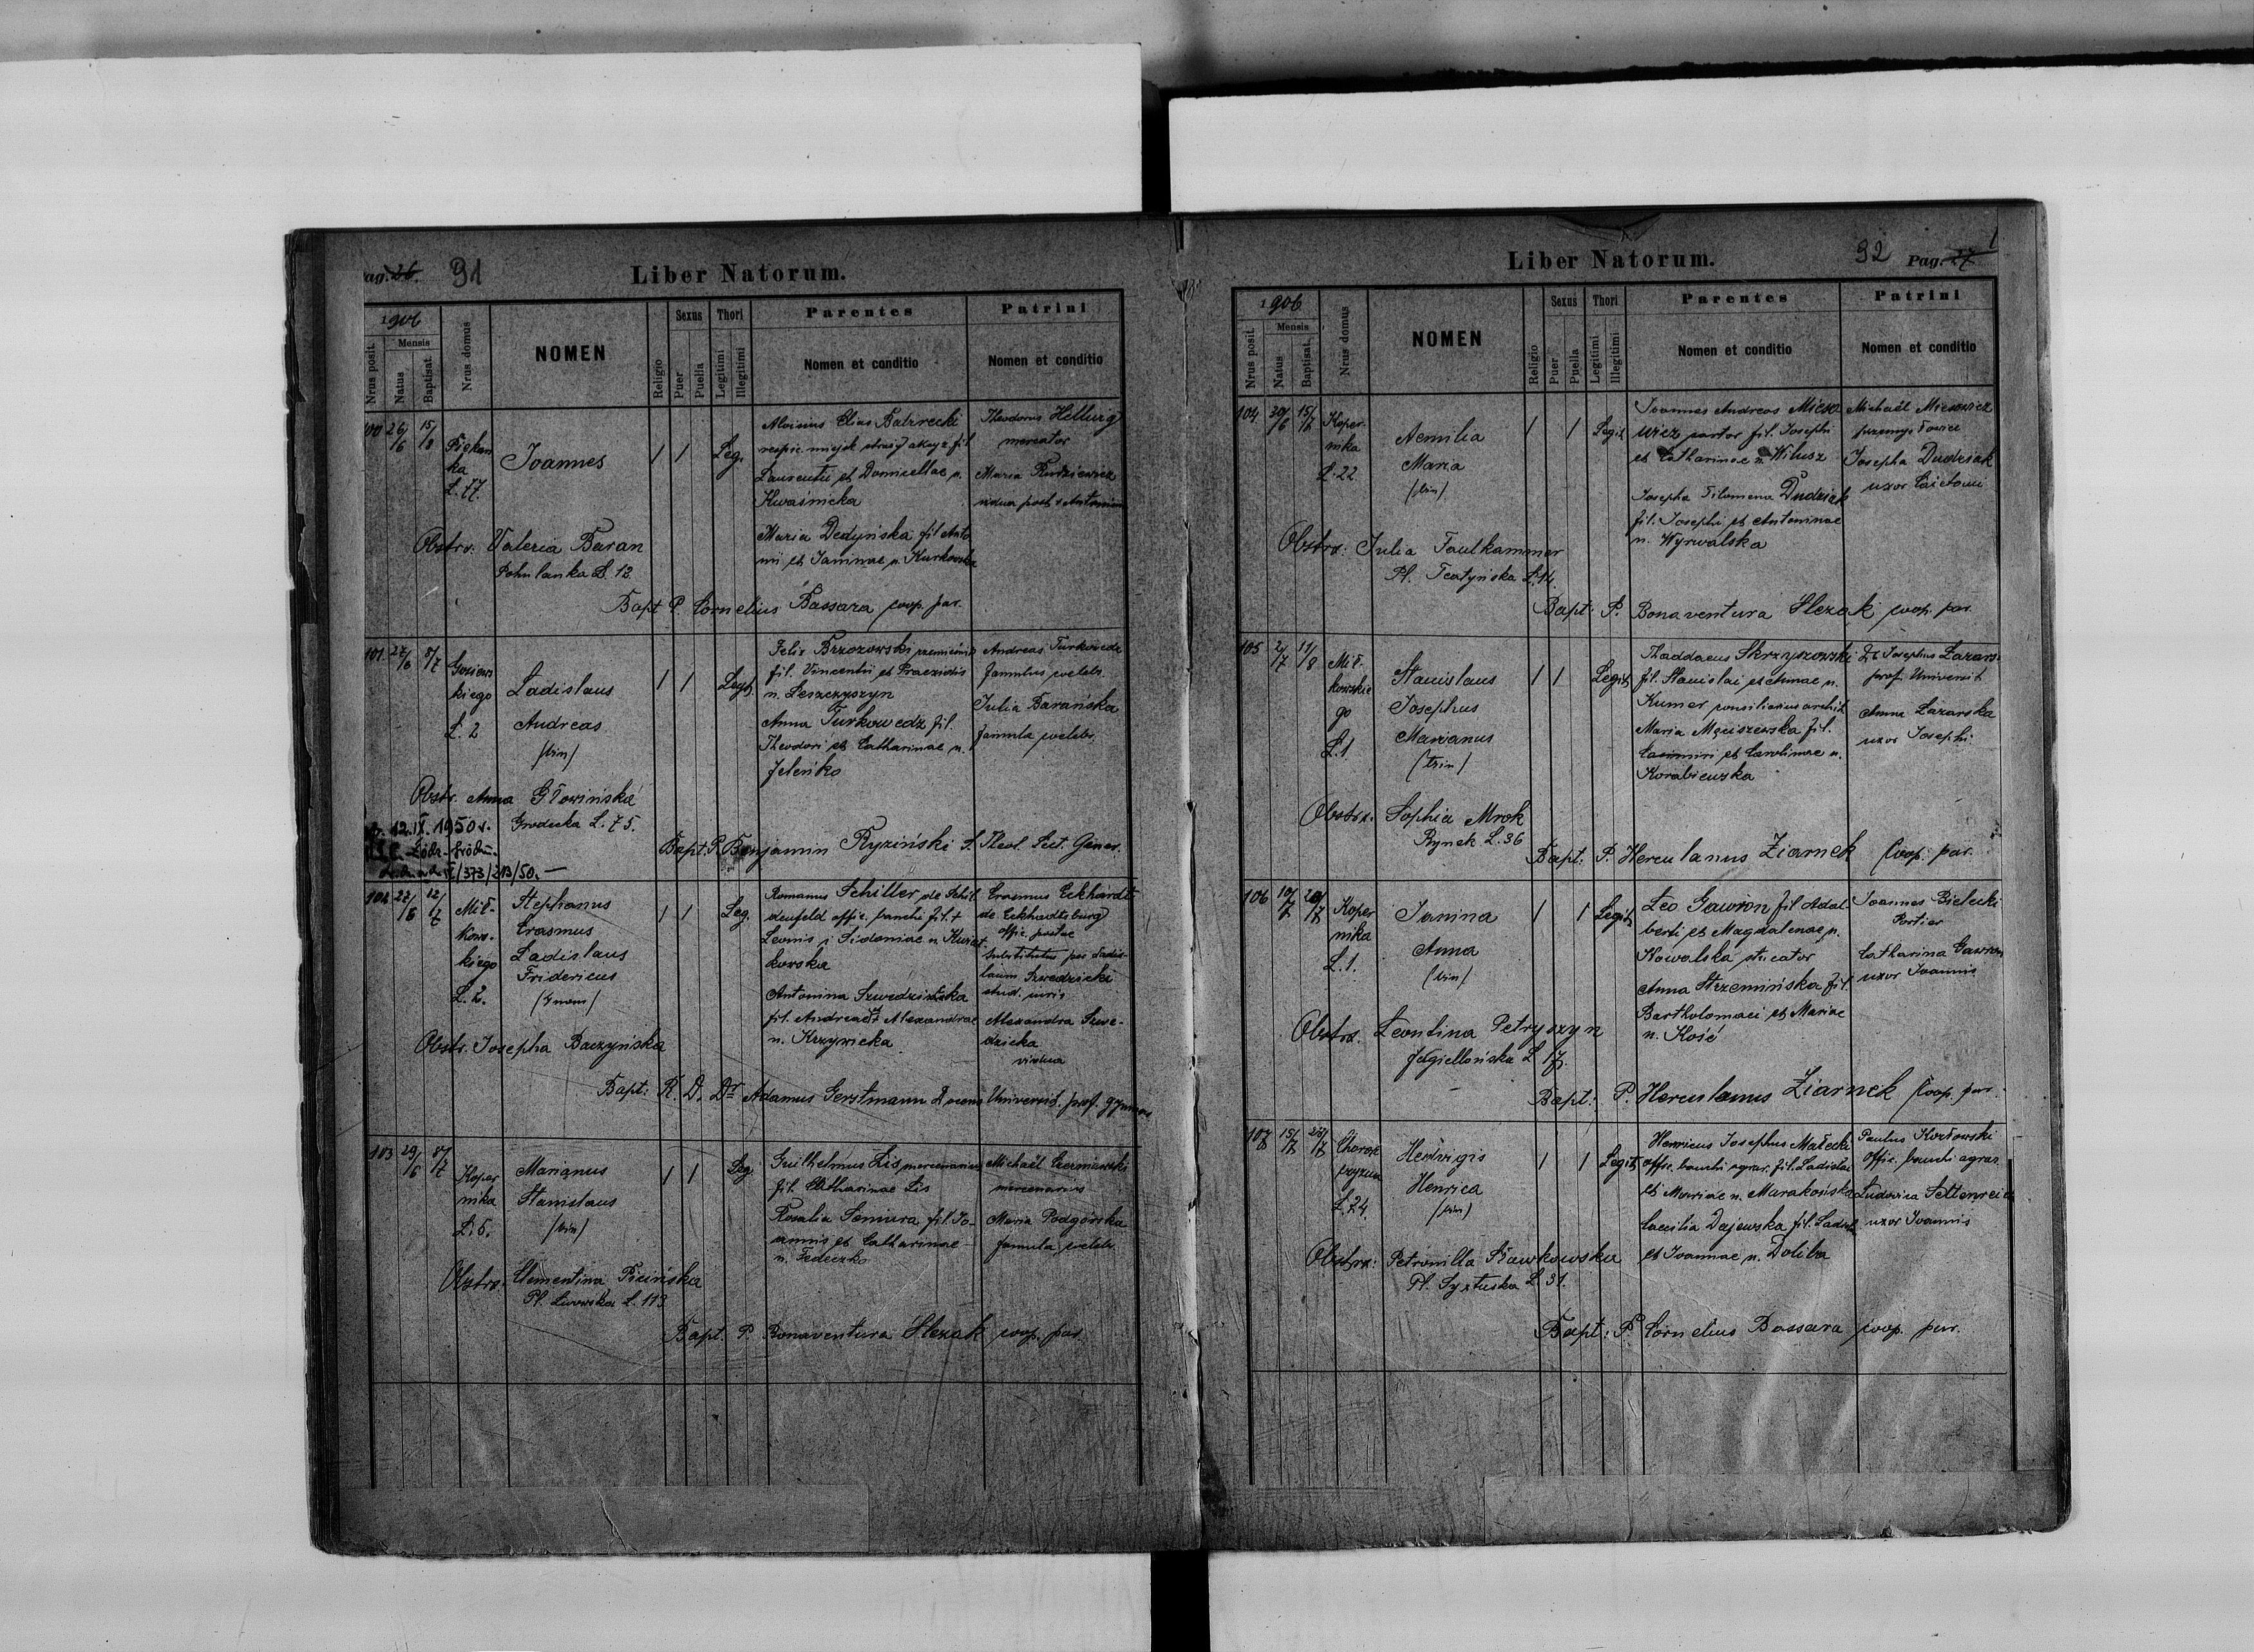 Pag. 26. 91
Liber Natorum.
1906
Nrus posit.
Mensis
Natus
Baptisat.
Nrus domus
NOMEN
Religio
Sexus
Puer
Puella
Thori
Legitimi
Illegitimi
Parentes
Nomen et conditio
Patrini
Nomen et conditio
100 26/6 15/8
L. 17.
Joannes
/ /
Leg.
Aloisius Elias
Laurentii et Domicellae n.
Kwaśnicka
Maria Dedyńska fil. Anto
nii et Janinae n. Kurkowska
Theodorus Hellurg
mercator
Maria
vidua post + Antonium
Obstr: Valeria Baran
Pohulanka L. 12.
Bapt P. Cornelius Bassara coop. par.
101. 27/6 8/7
kiego
L. 2
Ladislaus
Andreas
(bin)
/ /
Legit.
Felix Brzozowski
fil. Vincentii et Praexedis
n. Leszczyszyn
Anna Turkowedz fil.
Theodori et Catharinae n.
Jeleńko
Andreas Turkowedz
famulus celebs.
Julia Barańska
famula celebs.
Obstr. Anna Głowińska
Grodecka L. 75.
12. IX. 1950 r.
/373/213/50. —
Bapt. P. Benjamin Ryziński S. Theol. Lect. Gener.
102 27/6 12/7
Mił-
kows-
kiego
L. 2.
Stephanus
Erasmus
Ladislaus
Fridericus
(4 nom)
/ /
Leg.
Romanus Schiller de Schil
denfeld offic. banchi fil. +
Leonis i Sidoniae n. Kwiat
kowska
Antonina Szwedzicka
fil. Andreae et Alexandrae
n. Krzywicka
Erasmus Eckhardt
de Eckhardtsburg
offic.
substitutus per Ladis-
laum Szwedzicki
stud. iuris
Alexandra Szwe-
dzicka
vidua
Obstr. Josepha Baczyńska
Bapt: R. D. Dr Adamus Gerstmann Docens Universit. prof. gymn.
103 29/6 8/7
Koper
nika
L. 5.
Marianus
Stanislaus
(bin)
/ /
Leg.
Guilhelmus Lis mercenarius
fil. Catharinae Lis
Rosalia Semiura fil. Jo-
annis et Catharinae
n. Fedeczko
Michaël Czerniawski
mercenarius
Maria Podgórska
famula celebs.
Obstrx. Clementina Ficińska
Pl. Lwowska L. 113
Bapt. P. Bonaventura Slezak coop. par.
Liber Natorum.
92 Pag. 27
1906
Nrus posit.
Mensis
Natus
Baptisat.
Nrus domus
NOMEN
Religio
Sexus
Puer
Puella
Thori
Legitimi
Illegitimi
Parentes
Nomen et conditio
Patrini
Nomen et conditio
104 30/6 15/7
Koper-
nika
L. 22
Aemilia
Maria
(bin)
/ /
Legit.
Joannes Andreas Mieso
wicz fil. Josephi
et Catharinae n. Witusz
Josepha Filomena Dudziak
fil. Josephi et Antoninae
n. Wyrwalska
Michaël Miesowicz
Josepha Dudziak
uxor Caietani
Obstrx: Julia Faulkammer
Pl. Teatyńska L. 14.
Bapt: P. Bonaventura Slezak coop. par.
105 2/7 11/8
Mił-
kowskie
go
L. 1
Stanislaus
Josephus
Marianus
(trin)
/ /
Legit.
Thaddaeus Skrzyszowski
fil. Stanislai et Annae n.
Kumer consiliarius archit.
Maria Męciszewska fil.
Casimiri et Carolinae n.
Korabiewska
Dr Josephus Lazarski
prof. Universit.
Anna Lazarska
uxor Josephi.
Obstrx. Sophia Mrok
Rynek L. 36
Bapt. P. Herculanus Ziarnek Coop. par.
106 10/7 20/7
Koper
nika
L. 1.
Janina
Anna
(bin)
/ /
Legit.
Leo Gawron fil. Adal
berti et Magdalenae n.
Kowalska stucator
Anna Strzemińska fil.
Bartholomaei et Mariae
n. Kość
Joannes Bielecki
Portier
Catharina Gawron
uxor Joannis
Obstrx. Leontina Petryszyn
Jagiellońska L. 17.
Bapt: P. Herculanus Ziarnek Coop. par.
107 15/7 25/7
Chorąż
czyzna
L. 24.
Hedvigis
Henrica
(bin)
/ /
Legit.
Henricus Josephus Małecki
offic. banchi agrar. fil. Ladislai
et Mariae n. Marakosiska
Caecilia Dajewska fil. Ladisl.
et Joannae n. Doliba
Paulus Kozłowski
Offic. banchi agrar.
Ludovica Settenreich
uxor Joannis
Obstrx: Petronilla Sławkowska
Pl. Syxtuska L. 31.
Bapt: P. Cornelius Bassara coop. par.